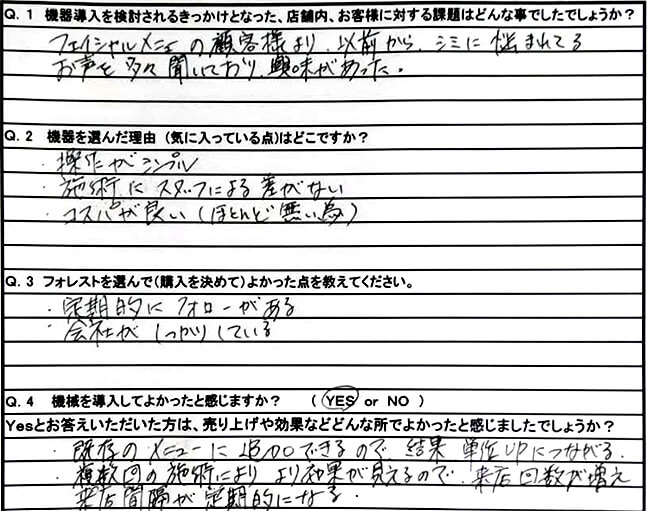 Q. 1 機器導入を検討されるきっかけとなった、店舗内、お客様に対する課題はどんな事でしたでしょうか？
フェイシャルメニューの顧客様より、以前から、シミに悩まれてる
お声を多々聞いており、興味があった。
Q. 2 機器を選んだ理由（気に入っている点）はどこですか？
・操作がシンプル
・施術にスタッフによる差がない
・コスパが良い（ほとんど無い為）
Q. 3 フォレストを選んで（購入を決めて）よかった点を教えてください。
・定期的にフォローがある
・会社がしっかりしている
Q. 4 機械を導入してよかったと感じますか？ （ YES or NO ）
Yesとお答えいただいた方は、売り上げや効果などどんな所でよかったと感じましたでしょうか？
・既存のメニューに追加できるので、結果 単価UPにつながる。
・複数回の施術により より効果が見えるので、来店回数が増え
来店間隔が定期的になる。